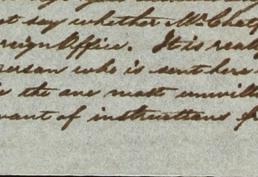 ot say whether Mr Chat
reign Office. It is real
erson who is sent here
is the one most unwill
want of instructions f